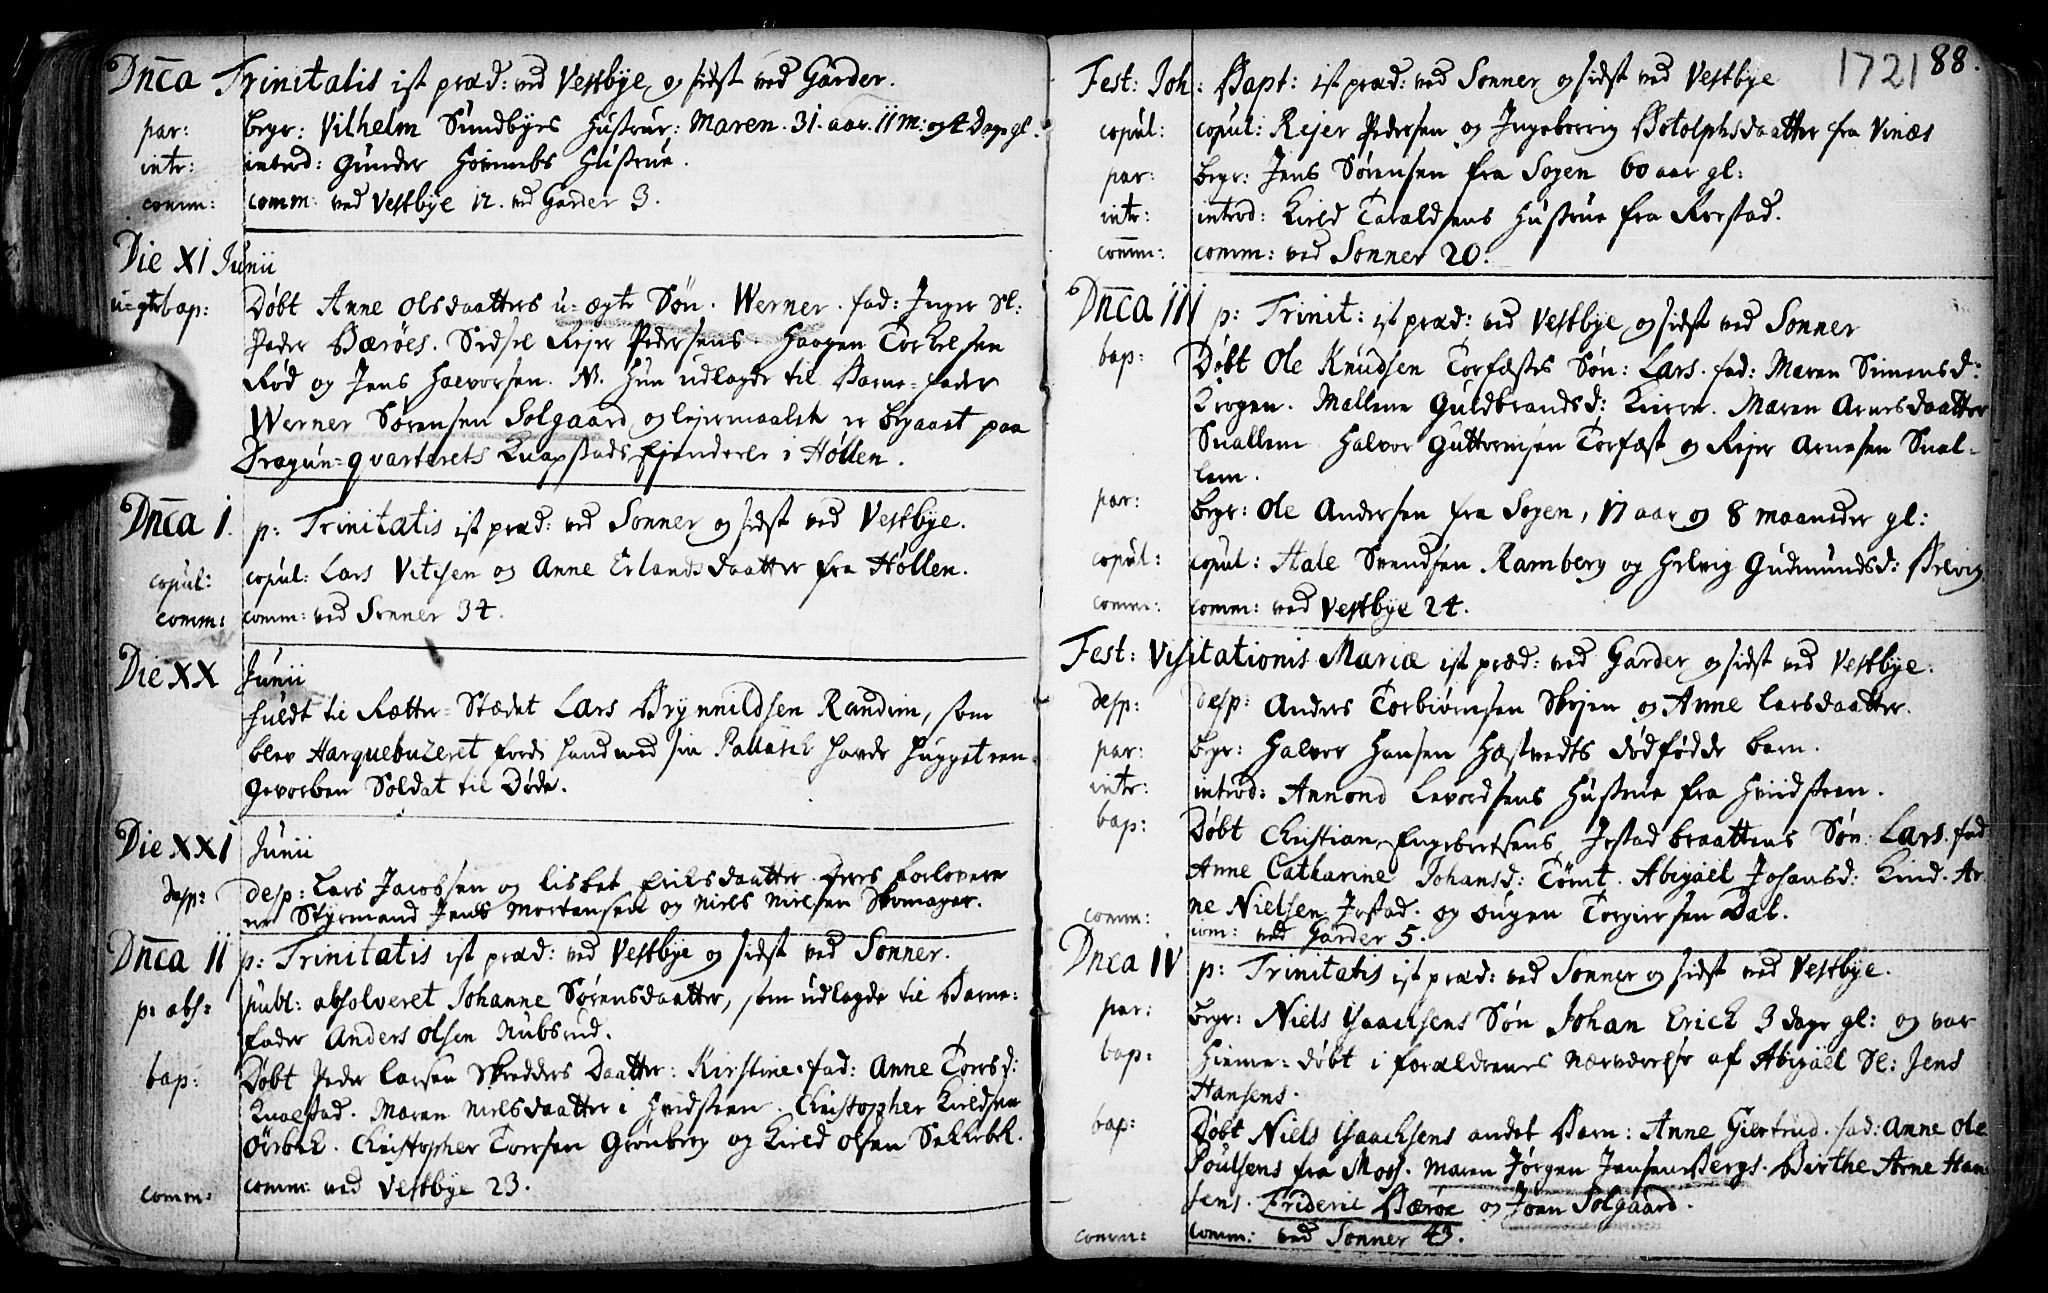 Dnca Trinitatis ist præd: ved Vestbye og sidst ved Garder.
par: begr: Vilhelm Sundbyes Hustrue: Maren. 31. aar. 11 m: og 4 Dage gl.
intr: introd: Gunder Hustrue.
comm: comm: ved Vestbye 12. ved Garder 3.
Die XI Junii
u-ægte bap: Døbt Anne Olsdaatters u-ægte Søn. Werner. fad: Inger Sl:
Peder Bærøes. Sidsel Rejer Pedersens. Haagen Torkelsen
Rød og Jens Halvorsen. NB. Hun udlagde til Barne-fader
Werner Sørensen Solgaard og lejermaalet er begaaet paa
Dragun-quarterets Knapstads Ejendeele i Høllen.
Dnca I. p: Trinitatis ist præd: ved Sonner og sidst ved Vestbye.
copul: copul: Lars Vitisen og Anne Erlandsdaatter fra Høllen.
comm: comm: ved Sonner 34.
Die XX Junii
fuldt til Rætter-Stædet Lars Brynnildsen Randim, som
blev Harquebuzeret fordi hand med sin Pallasch hafde hugget een
gevorben Soldat til Døde.
Die XXI Junii
desp: desp: Lars Jacobsen og Lisbet Eriksdaatter. Deres forlovere
er Styrmand Jens Mortensen og Niels Nielsen Skomager.
Dnca II p: Trinitatis ist præd: ved Vestbye og sidst ved Sonner.
p: abs: publ: absolveret Johanne Sørensdaatter, som udlagde til Barne-
fader Anders Olsen Nubsrud.
bap: Døbt Peder Larsen Skredders Daatter: Kirstine. fad: Anne Toresd:
Kualstad. Maren Nielsdaatter i Hvidsteen. Christopher Kieldsen
Ørebek. Christopher Toresen Grønberg og Kield Olsen Sekkebek.
comm: comm: ved Vestbye 23.
1721 88.
Fest: Joh: Bapt: ist præd: ved Sonner og sidst ved Vestbye
copul: copul: Rejer Pedersen og Ingeborrig Botolphsdaatter fra Vinæs
par: begr: Jens Sørensen fra Sogen 60 aar gl:
intr: introd: Kield Taraldsens Hustrue fra Rørstad.
comm: comm: ved Sonner 20.
Dnca III p: Trinit: ist præd: ved Vestbye og sidst ved Sonner
bap: Døbt Ole Knudsen Torfæstes Søn: Lars. fad: Maren Simensd:
Krogen. Mallene Guldbrandsd: Kierre. Maren Arnesdaatter
Snallem Halvor Guttormsen Torfæst og Rejer Arnesen Snal-
lem.
par: begr: Ole Andersen fra Sogen, 17 aar og 8 maaneder gl:
copul: copul: Stale Svendsen Ramberg og Helvig Gudmundsd: Brevig
comm: comm: ved Vestbye 24.
Fest: Visitationis Mariæ ist præd: ved Garder og sidst ved Vestbye.
desp: desp: Anders Torbiørnsen Skejen og Anne Larsdaatter.
par: begr: Halvor Hansen Hastvedts dødfødde barn.
intr: introd: Annond Levordsens Hustrue fra Hvidsteen.
bap: Døbt Christian Engebretsens Jestadbraattens Søn Lars. fad
Anne Catharine Johansd: Tømt. Abigael Johansd: Kind. Ar-
ne Nielsen Jestad. og Torgiersen Dal.
comm: com: ved Garder 5.
Dnca IV p: Trinitatis ist præd: ved Sonner og sidst ved Vestbye.
par: begr: Niels Isaachsens Søn Johan Erich 3 dage gl: og var
bap: hieme-døbt i forældrenes nærværelse af Abigael Sl: Jens
Hansens.
bap: Døbt Niels Isaachsens andet Barn: Anne Giertrud. fad: Anne Ole
Poulsens fra Moss. Maren Jørgen Jensen Bergs. Birthe Arne Han-
sens. Frideric Bærøe og Joen Solgaard.
comm: comm: ved Sonner 43.